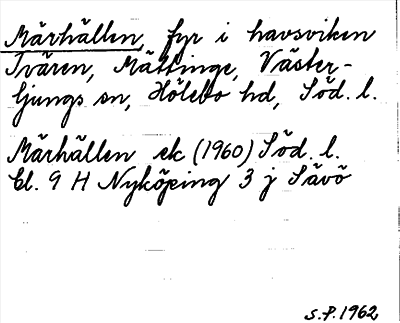 Märhällen, fyr i havsviken
Tvären, Mättinge, Väster-
ljungs sn, Hölebo hd, Söd. l.
Märhällen ek (1960) Söd. l.
Bl. 9 H Nyköping 3 j Sävö
S.P. 1962